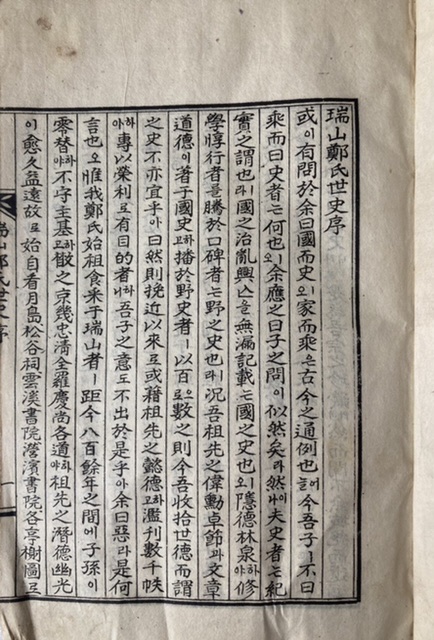 瑞山鄭氏世史序
或이有問於余曰國而史오家而乘은古今之通例也늘今吾子ㅣ不曰
乘而曰史者는何也오余應之曰子之問이似然矣라然나夫史者는紀
實之謂也라國之治亂興亡을無漏記載는國之史也오隱德林泉야하修
學惇行者를騰於口碑者는野之史也라況吾祖先之偉勳卓節과文章
道德이著于國史고하播於野史者ㅣ以百으로數之則今吾收拾世德而謂
之史不亦宜乎아曰然則挽近以來로或藉祖先之懿德고하濫刊數千帙
야하專以榮利로有目的者니하吾子之意도不出於是乎아余曰惡라是何
言也오惟我鄭氏始祖食采于瑞山者ㅣ距今八百餘年之間에子孫이
零替야하不字主基고하散之京幾忠淸全羅慶尙各道야하祖先之潛德幽光
이愈久益遠故로始自看月島松谷祠雲溪書院濚濱書院各亭榭圖로
瑞山鄭氏世史 序
一